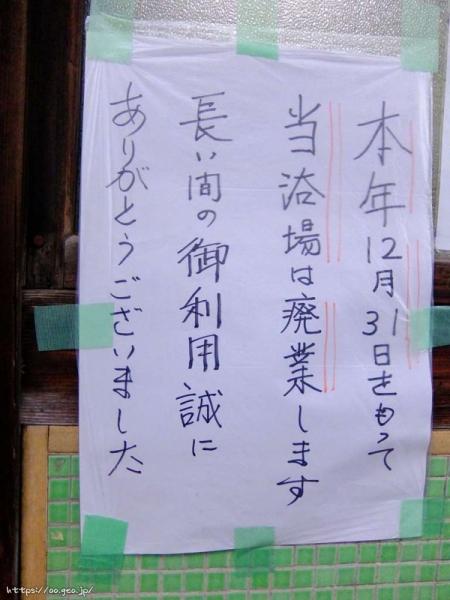 本年12月31日をもって
当浴場は廃業します
長い間の御利用誠に
ありがとうございました
https://oo.geo.jp/